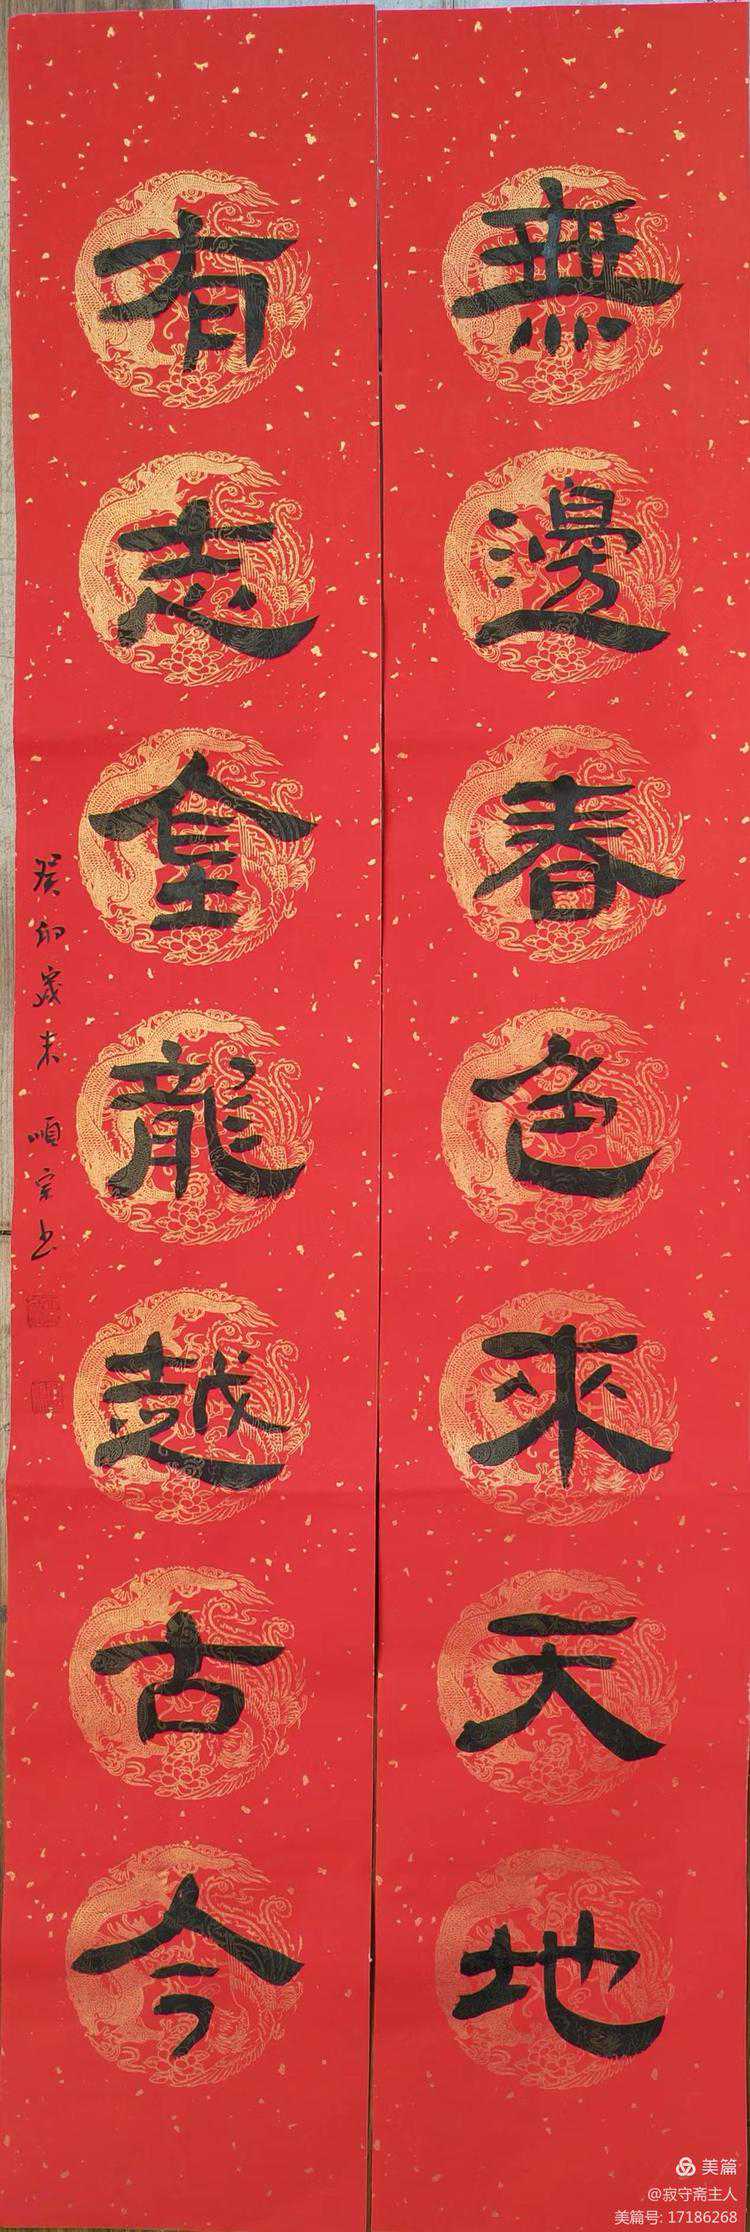 無邊春色來天地
有志金龍越古今
癸卯歲末 順宗书
美篇
@寂守斋主人
美篇号: 17186268